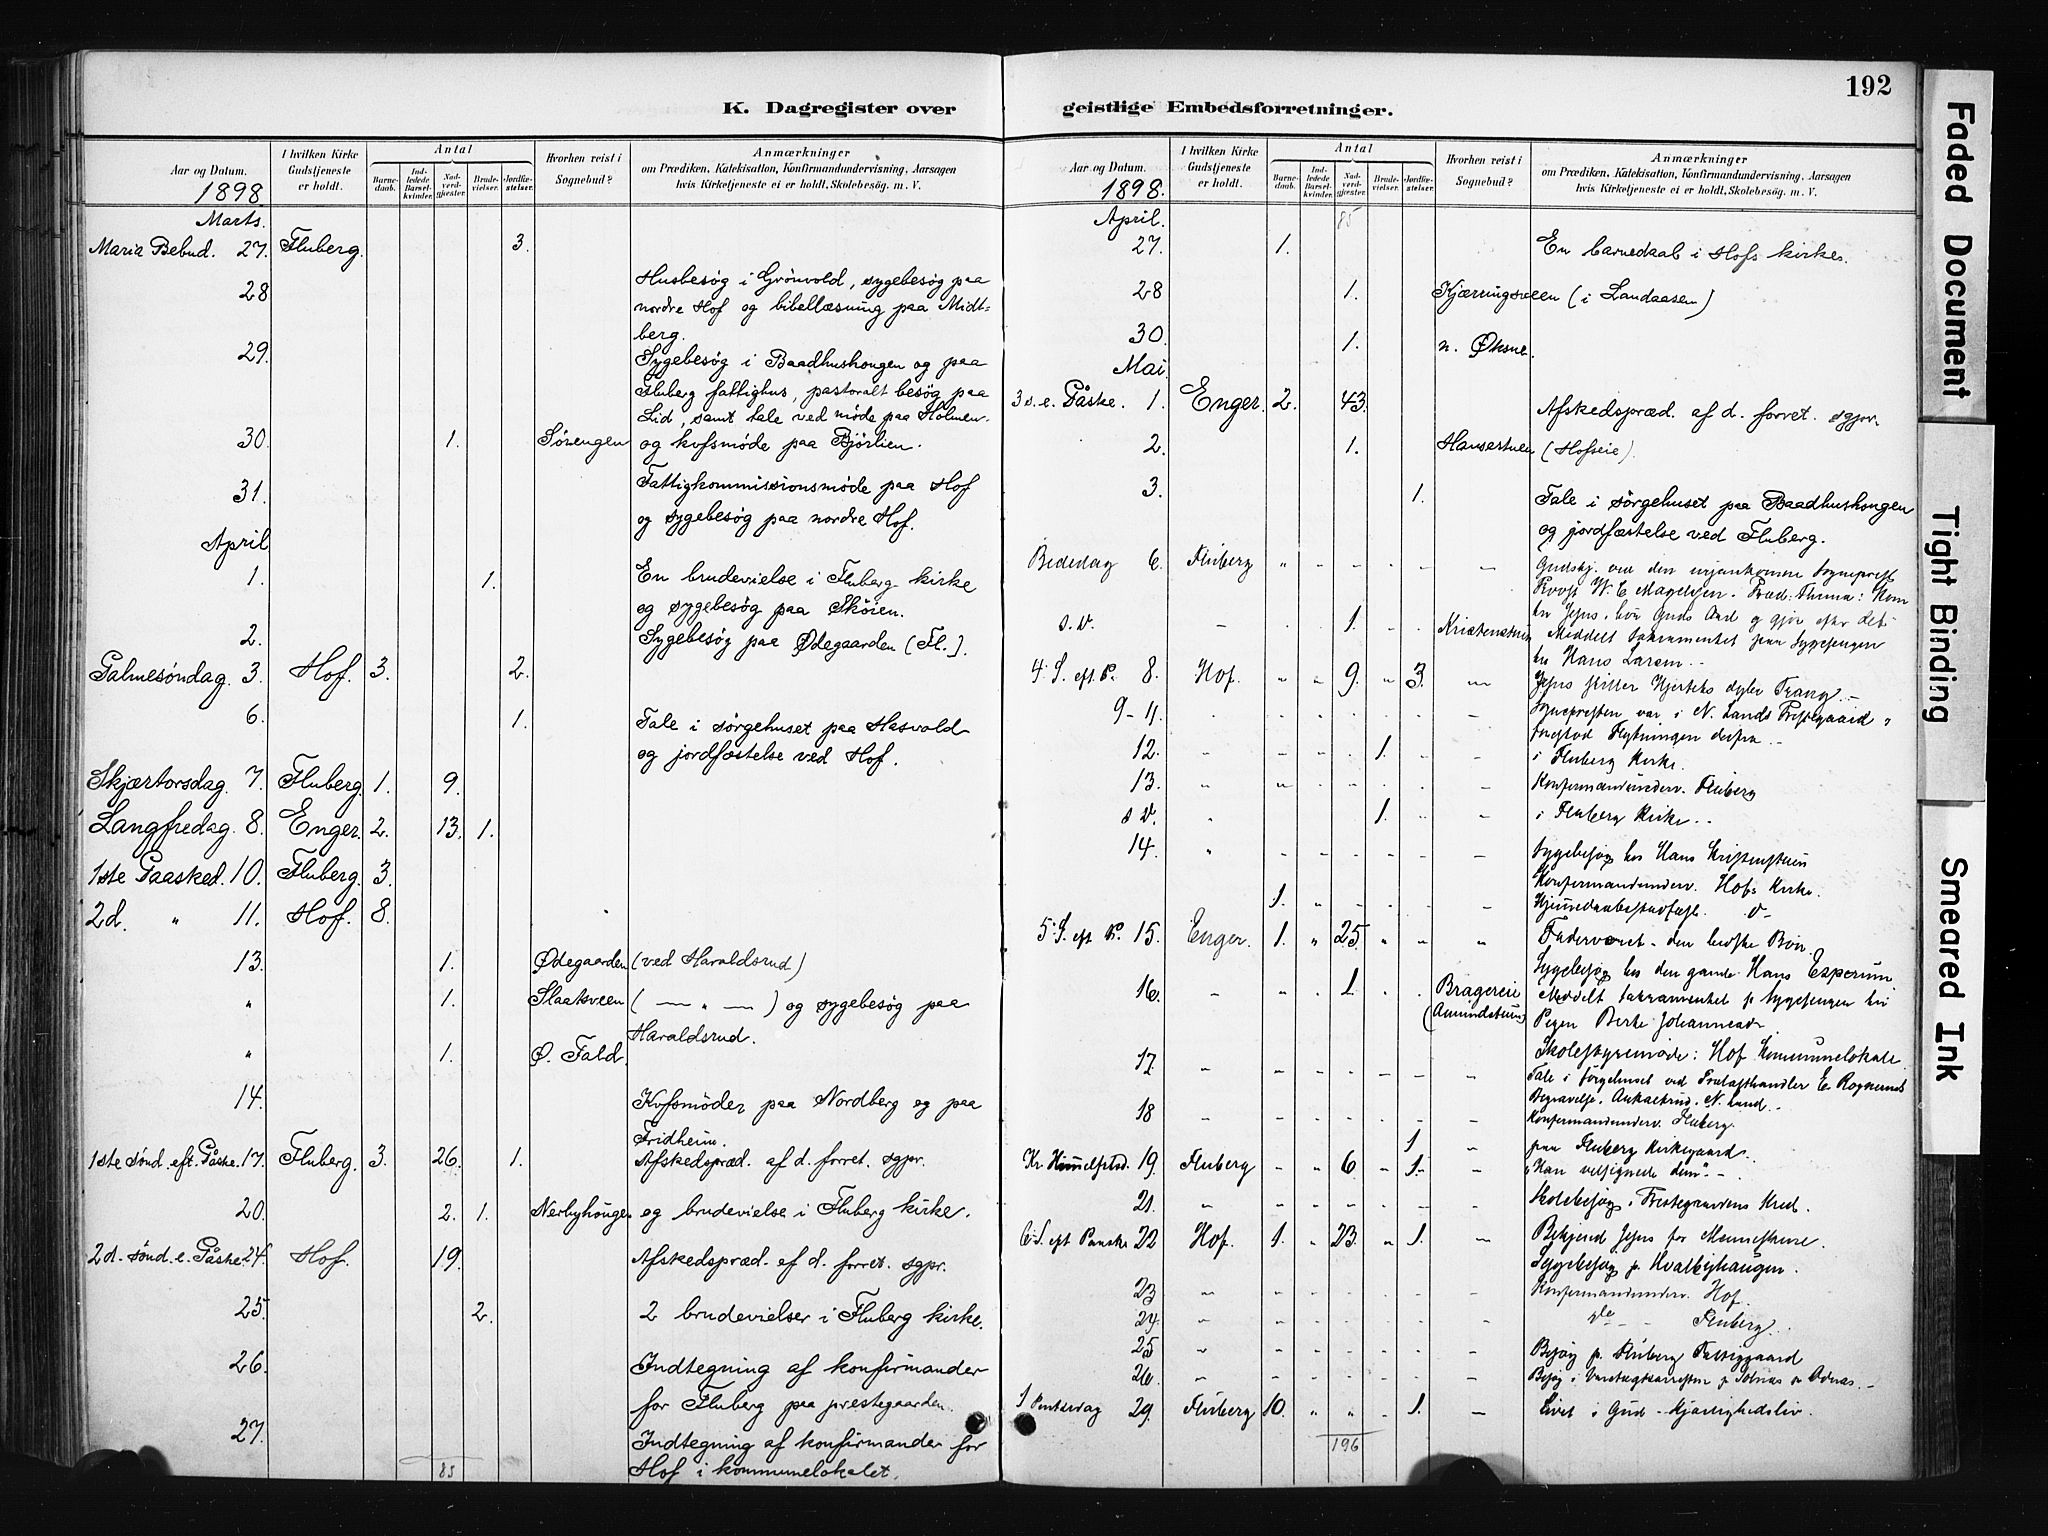 192
K. Dagregister over
geistlige Embedsforretninger.
Aar og Datum.
1898
I hvilken Kirke Gudstjeneste er holdt.
Antal
Barnedaab.
Indledede Barselkvinder.
Nadverdgjester.
Brudevielser.
Jordfæstelser.
Hvorhen reist i Sognebud?
Anmærkninger
om Prædiken, Katekisation, Konfirmandundervisning, Aarsagen
hvis Kirketjeneste ei er holdt, Skolebesøg. m. V.
Marts.
Maria Bebud. 27. Fluberg. 3.
28 Husbesøg i Grönvold, sygebesøg paa
nordre Hof og bibellæsning paa Midt-
berg.
29. Sygebesøg i Baadhushougen og paa
Fluberg fattighus, pastoralt besøg paa
Lid, samt tale ved møde paa Holmen.
30. 1. Sörengen og kvfsmöde paa Bjørlien.
31. Fattigkommissionsmöde paa Hof
og sygebesøg paa nordre Hof.
April
1. 1. En brudevielse i Fluberg kirke
og sygebesøg paa Sköien.
2. Sygebesøg paa Ødegaarden (Fl.).
Palmesöndag. 3. Hof. 3. 2.
6. 1. Tale i sörgehuset paa Hasvold
og jordfæstelse ved Hof.
Skjærtorsdag. 7. Fluberg. 1. 9.
Langfredag. 8. Enger. 2. 13. 1.
1ste Paasked. 10. Fluberg. 3.
2d. " 11. Hof. 8.
13. 1. Ødegaarden (ved Haraldsrud)
" 1. Slaatsveen ( — " — ) og sygebesøg paa
Haraldsrud.
" 1. Ø. Fald.
14. Kvfsmöder paa Nordberg og paa
Fridheim.
1ste sönd. eft. Påske. 17. Fluberg. 3. 26. 1. Afskedspræd. af d. forret. sgpr.
20. 2. 1. Nerbyhougen og brudevielse i Fluberg kirke.
2d. sönd. e. Påske. 24. Hof. 19. Afskedspræd. af d. forret. sgpr.
25. 2. 2 brudevielser i Fluberg kirke.
26. Indtegning af konfirmander
for Fluberg paa prestegaarden.
27. Indtegning af konfirmander for
Hof i kommunelokalet.
85
Aar og Datum.
1898.
I hvilken Kirke Gudstjeneste er holdt.
Antal
Barnedaab.
Indledede Barselkvinder.
Nadverdgjester.
Brudevielser.
Jordfæstelser.
Hvorhen reist i Sognebud?
Anmærkninger
om Prædiken, Katekisation, Konfirmandundervisning, Aarsagen
hvis Kirketjeneste ei er holdt, Skolebesøg. m. V.
April. 85
27. 1. En barnedaab i Hofs kirke.
28 1. Kjærringsveen (i Landaasen)
30. 1. n. Øksne.
Mai.
3 s. e. Påske. 1. Enger. 2. 43. Afskedspræd. af d. forret. sgpr.
2. 1. Hansestuen (Hofseie).
3. 1. Tale i sörgehuset paa Baadhushougen
og jordfæstelse ved Fluberg.
Bededag 6. Fluberg " - - - - - Gudstj. ved den nyankomne Sogneprest
Provst W. C. Magelssen. Præd. Thema: Kom
til Jesus, hör Guds Ord og gjör efter det.
s. D. - 1. Kristenstuen Meddelt Sakramentet paa Sygesengen
til Hans Larsen.
4. S. eft. P. 8. Hof. " " 9. " 3. Jesus stiller Hjertets dybe Trang. -
9-11. Sognepresten var i N. Lands Prestegaard
forestod Flytningen derfra. -
12. 1. i Fluberg Kirke.
13. Konfirmandunderv. Fluberg
s D. 1. i Fluberg Kirke.
14. Sygebesøg hos Hans Kristenstuen
Konfirmandunderv. Hofs Kirke.
1. Hjemmedaabsstadfæst. D-
5. S. eft. P. 15. Enger. 1. " 25. " " " Fadervoret - den bedste Bön.
Sygebesøg hos den gamle Hans Esperum
16. 1. Bragereie Meddelt Sakramentet p. Sygesengen til
(Amundstuen) Pigen Berte Johannesdr.
17. Skolestyremöde: Hof Kommunelokale
Tale i Sörgehuset ved
Begravelse. N. Land.
18 Konfirmandunderv. Fluberg.
1 paa Fluberg Kirkegaard.
Kr. Himmelfartsd. 19. Fluberg - " 6 " 1. "Han velsignede dem". -
21. Skolebesøg i Prestegaardens Kred.
6. S. eft Paaske 22 Hof. 1. " 23. " 1. Bekjend Jesus for Menneskene.
Sygebesøg p. Hvalbyhaugen.
23 Konfirmandunderv. Hof.
24. do - - Fluberg.
25 Besøg p. Fluberg Fattiggaard
26. Besøg i Varetægtsarresten p. Odnæs. -
1 Pintsedag 29. Fluberg 10. " " - 1. - Livet i Gud - Kjærlighedsliv.
196
Faded Document
Tight Binding
Smeared Ink